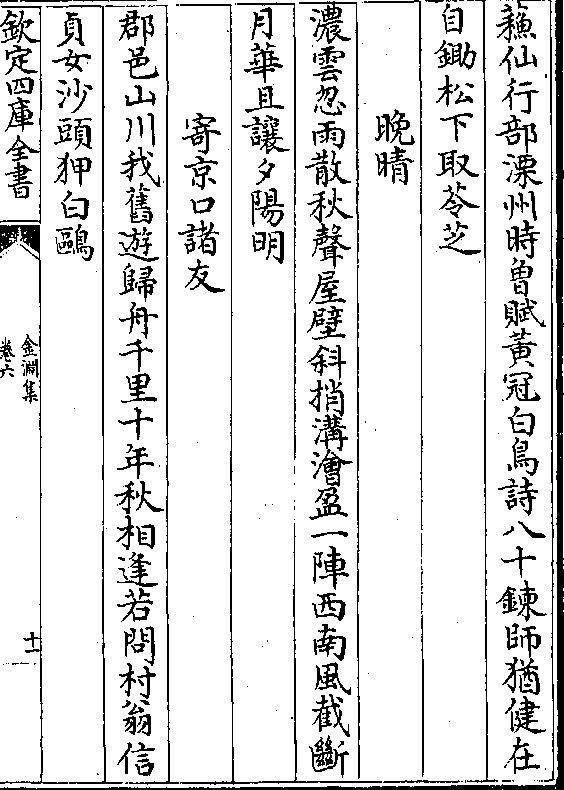 蘓仙行部溧州時曽賦黃冠白鳥詩八十鍊師猶健在
自鋤松下取苓芝
晚晴
濃雲忽雨散秋聲屋壁斜捎溝澮盈一陣西南風截斷
月華且讓夕陽明
寄京口諸友
郡邑山川我舊遊歸舟千里十年秋相逢若問村翁信
貞女沙頭狎白鷗
欽定四庫全書
金淵集
卷六
十一